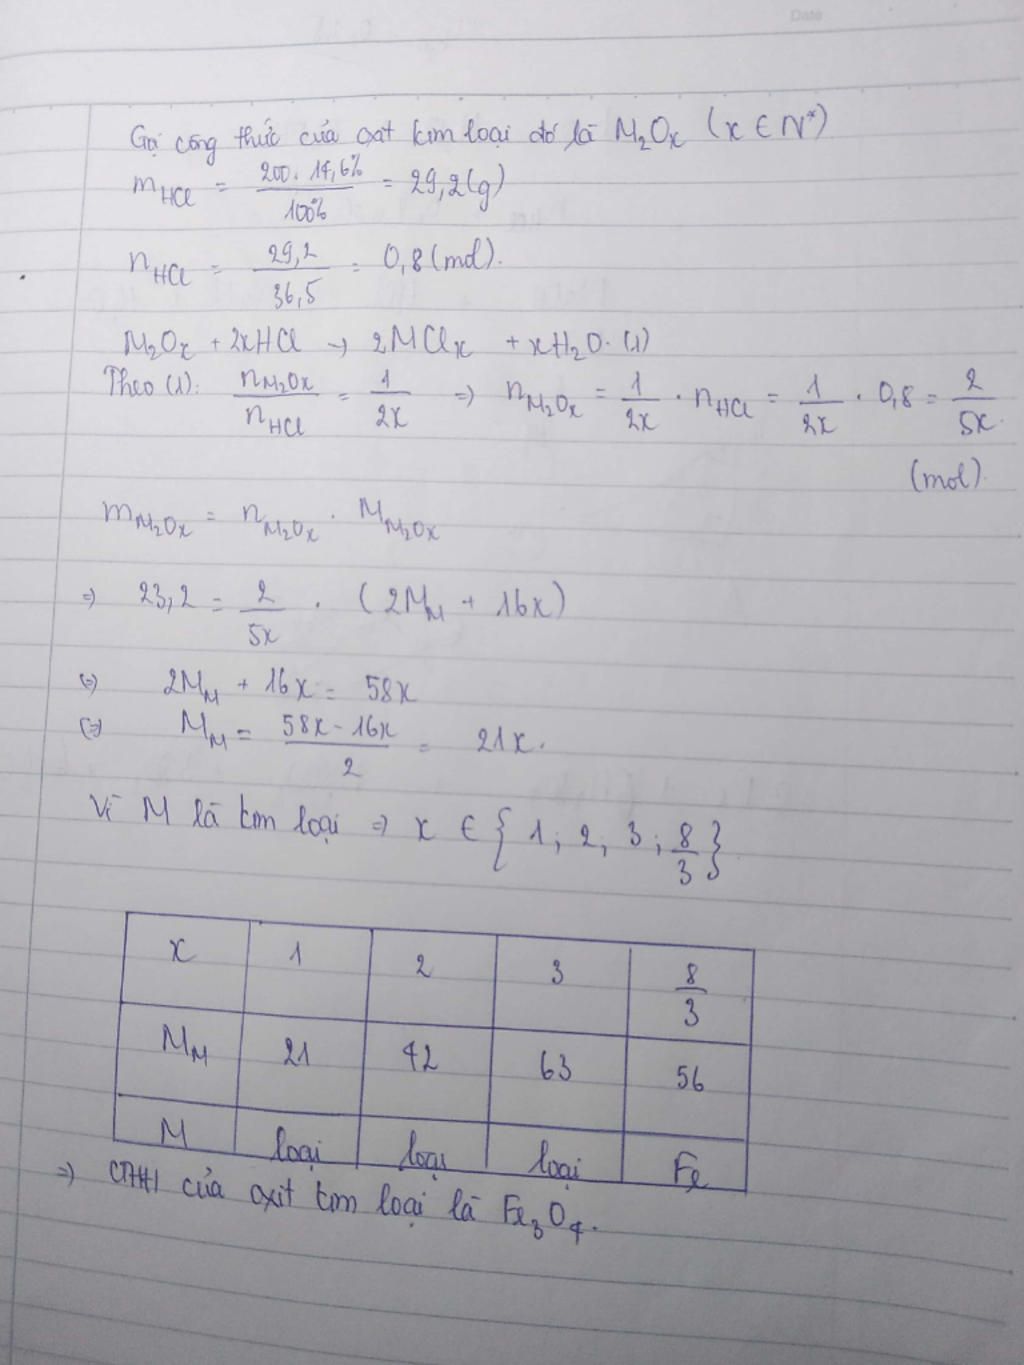 Date
Gọi công thức của oxit kim loại đó là M₂Oₓ (x ∈ N*)
m_HCl = 200.14,6% / 100% = 29,2(g)
n_HCl = 29,2 / 36,5 = 0,8(mol).
M₂Oₓ + 2xHCl → 2MClₓ + xH₂O. (1)
Theo (1): n_M₂Oₓ / n_HCl = 1 / 2x ⇒ n_M₂Oₓ = 1 / 2x . n_HCl = 1 / 2x . 0,8 = 2 / 5x.
(mol).
m_M₂Oₓ = n_M₂Oₓ . M_M₂Oₓ
⇒ 23,2 = 2 / 5x . (2M_M + 16x)
⇔ 2M_M + 16x = 58x
⇔ M_M = 58x - 16x / 2 = 21x.
Vì M là kim loại ⇒ x ∈ { 1; 2; 3; 8/3 }
x 1 2 3 8/3
M_M 21 42 63 56
M loại loại loại Fe
⇒ CTHH của oxit kim loại là Fe₃O₄.